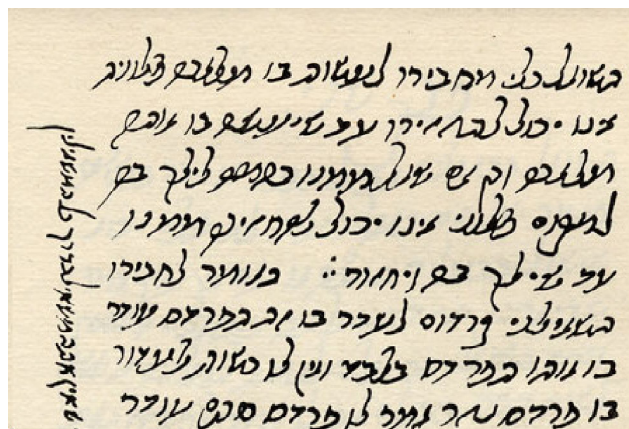 השואל כלי מחבירו לעשות בו מלאכה פלונית
אינו יכול להחזירו עד שיעשה בו אותה
מלאכה וכן אם שאל ממנו בהמה לילך בה
למקום פלוני אינו יכול להחזירה ממנו
עד שילך בה ויחזור : האומר לחבירו
השאילני קרדום לעדר בו את הפרדס עודר
בו אותו הפרדס בלבד ואין לו רשות לעדור
בו פרדס אחר אמר לו פרדס סתם עודר